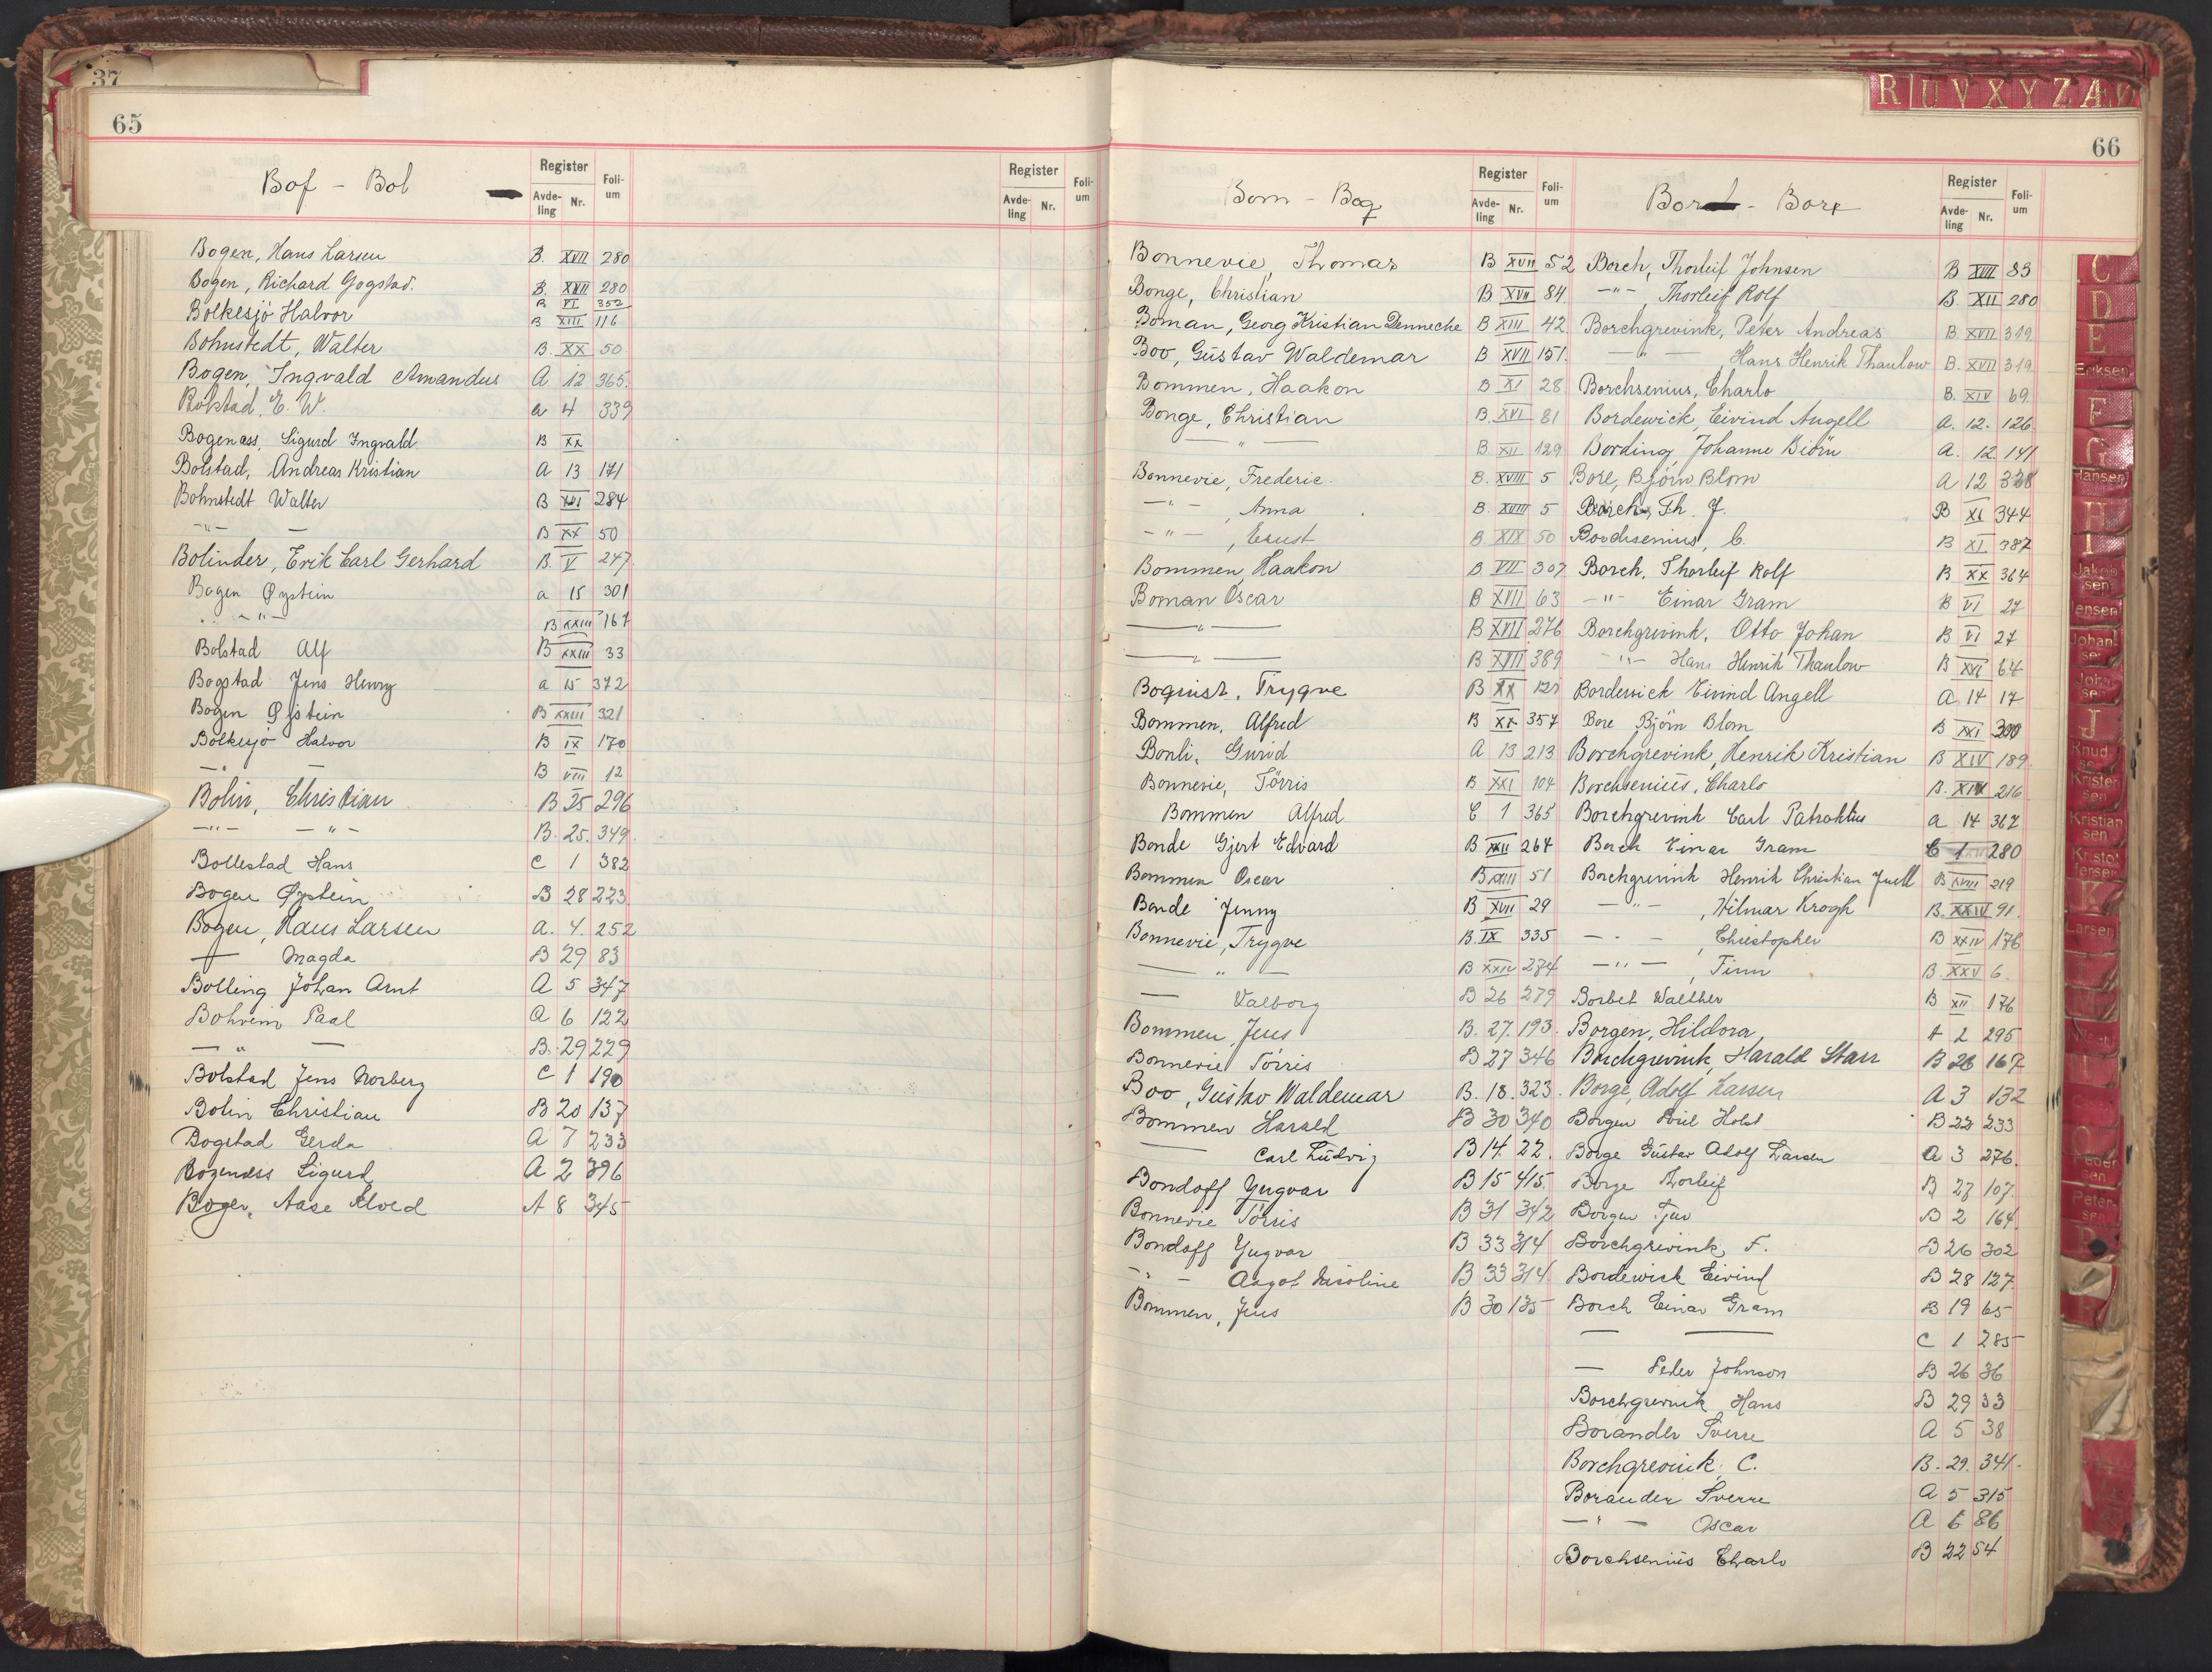 37
65
Bof - Bol
Register
Avde-ling Nr.
Foli-um
Register
Avde-ling Nr.
Foli-um
Bogen, Hans Larsen B. XVII 280
Bogen, Richard Gogstad. B. XVII 280
B VI 352
Bolkesjö Halvor B XIII 116
Bohnstedt, Walter B. XX 50
Bogen, Ingvald Amandus A 12 365.
Bolstad, E. W. a 4 339
Bogenæss, Sigurd Ingvald B XX
Bolstad, Andreas Kristian A 13 171
Bohnstedt Walter B XVI 284
-"- — B XX 50
Bolinder, Erik Carl Gerhard B. V 247
Bogen Øystein a 15 301
-"- B XXIII 167
Bolstad Alf B XXIII 33
Bogstad Jens Henry a 15 372
Bogen Øistein B XXIII 321
Bolkesjö Halvor B IX 170
—"— B VIII 12
Bolin, Christian B 25 296
-"- -"- B. 25. 349.
Bollestad Hans C 1 382
Bogen Øystein B 28 223
Bogen, Hans Larsen A. 4. 252
— Magda B 29 83
Bolling Johan Arnt A 5 347
Bohrem Paal A 6 122
— " — B. 29 229
Bolstad Jens Norberg C 1 190
Bolin Christian B 20 137
Bogstad Gerda A 7 233
Bogenæss Sigurd A 2 396
Bogen, Aase Alved A 8 345
R U V X Y Z Æ Ø
66
Bom - Boq
Register
Avde-ling Nr.
Foli-um
Bonnevie, Thomas B XVII 52
Bonge, Christian B. XVII 84.
Boman, Georg Kristian Denneche B XIII 42
Boo, Gustav Waldemar B XVII 151.
Bommen, Haakon B XI 28
Bonge, Christian B. XVI 81
— " — B. XII 129
Bonnevie, Frederic. B. XVIII 5
-"- , Anna B. XVIII 5
-"- , Ernst B. XIX 50
Bommen, Haakon B VII 307
Boman Oscar B XVII 63
— " — B XVII 276
— " — B XVII 389
Boquist, Trygve B XX 127
Bommen, Alfred B XX 357
Bonli, Gurid A 13 213
Bonnevie, Törris B XXI 104
Bommen Alfred C 1 365
Bonde Gjert Edvard B XXII 264
Bommen Oscar B XXIII 51
Bonde Jenny B XVII 29
Bonnevie, Trygve B. IX 335
— " — B XXIV 274
— Valborg B 26 279
Bommen, Jens B. 27. 193.
Bonnevie Törris B 27 346
Boo, Gustav Waldemar B. 18. 323.
Bommen Harald B 30 340
— Carl Ludvig B 14 22.
Bondoff Yngvar B 15 415.
Bonnevie Törris B 31 342
Bondoff Yngvar B 33 314
-"- Aagot Nicoline B 33 314.
Bommen, Jens B 30 135
Bor - Borx
Register
Avde-ling Nr.
Foli-um
Borch, Thorleif Johnsen B XVIII 83
-"- , Thorleif Rolf B. XII 280
Borchgrevink, Peter Andreas B. XVII 319.
— " — Hans Henrik Thaulow B. XVII 319
Borchsenius, Charlo B. XIV 69.
Bordewick, Eivind Angell A. 12. 126.
Bording, Johanne Biörn A. 12. 141
Bore, Björn Blom A 12 328
Borch, Th. J. B XI 344
Borchsenius, C. B XI 387
Borch, Thorleif Rolf B XX 364
-"- Einar Gram B VI 27
Borchgrevink, Otto Johan B VI 27
-"- Hans Henrik Thaulow B XVI 64
Bordewick Eivind Angell A. 14 17
Bore Björn Blom B XXI 300
Borchgrevink, Henrik Kristian B XIV 189.
Borchsenius, Charlo B. XIX 216
Borchgrevink Carl Patroklus a 14 367
Borch Einar Gram C 1 280
Borchgrevink Henrik Christian Juell B XVIII 219
— " — , Hilmar Krogh B. XXIV 91.
— " — , Christopher B XXIV 176
— " — , Finn B. XXV 6.
Borbet Walther B XII 176
Borgen, Hildora A 2 295
Borchgrevink, Harald Starr B 26 167
Borge, Adolf Larsen A 3 132
Borgen Holst B 22 233
Borge Gustav Adolf Larsen A 3 276.
Borge Thorleif B 27 107.
Borgen B 2 164.
Borchgrevink, F. B 26 302
Bordewick Eivind B 28 127.
Borch Einar Gram B 19 65
— — C 1 285
— Peder Johnson B 26 36
Borchgrevink Hans B 29 33
Borander Sverre A 5 38
Borchgrevink, C. B. 29. 341.
Borander Sverre A 5 315
—"— Oscar A 6 86
Borchsenius Charlo B 22 54
C
D
E
Eriksen
F
G
Hansen
H
I
Jakobsen
Jensen
Johansen
J
Knudsen
Kristensen
Kristiansen
Kristoffersen
K
Larsen
L
Pedersen
Petersen